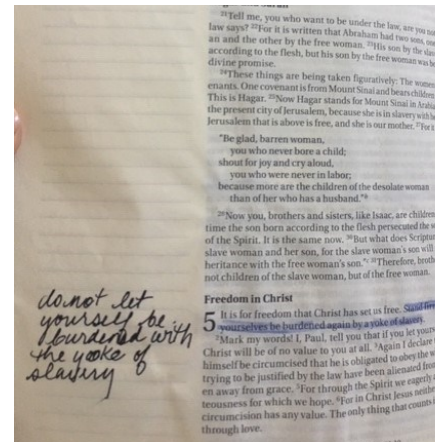 ²¹Tell me, you who want to be under the law, are you not
law says? ²²For it is written that Abraham had two sons, one
an and the other by the free woman. ²³His son by the slave
according to the flesh, but his son by the free woman was
divine promise.
²⁴These things are being taken figuratively: The women
enants. One covenant is from Mount Sinai and bears children
This is Hagar. ²⁵Now Hagar stands for Mount Sinai in Arabia
the present city of Jerusalem, because she is in slavery with
Jerusalem that is above is free, and she is our mother. ²⁷For
"Be glad, barren woman,
you who never bore a child;
shout for joy and cry aloud,
you who were never in labor;
because more are the children of the desolate woman
than of her who has a husband."
²⁸Now you, brothers and sisters, like Isaac, are children
time the son born according to the flesh persecuted the
of the Spirit. It is the same now. ³⁰But what does Scripture
slave woman and her son, for the slave woman's son will
heritance with the free woman's son." ³¹Therefore, broth
not children of the slave woman, but of the free woman.
Freedom in Christ
5 It is for freedom that Christ has set us free. Stand firm
yourselves be burdened again by a yoke of slavery.
²Mark my words! I, Paul, tell you that if you let yours
Christ will be of no value to you at all. ³Again I declare
himself be circumcised that he is obligated to obey the
trying to be justified by the law have been alienated from
en away from grace. ⁵For through the Spirit we eagerly
teousness for which we hope. ⁶For in Christ Jesus neithe
circumcision has any value. The only thing that counts
through love.
do not let
yourself be
burdened with
the yoke of
slavery